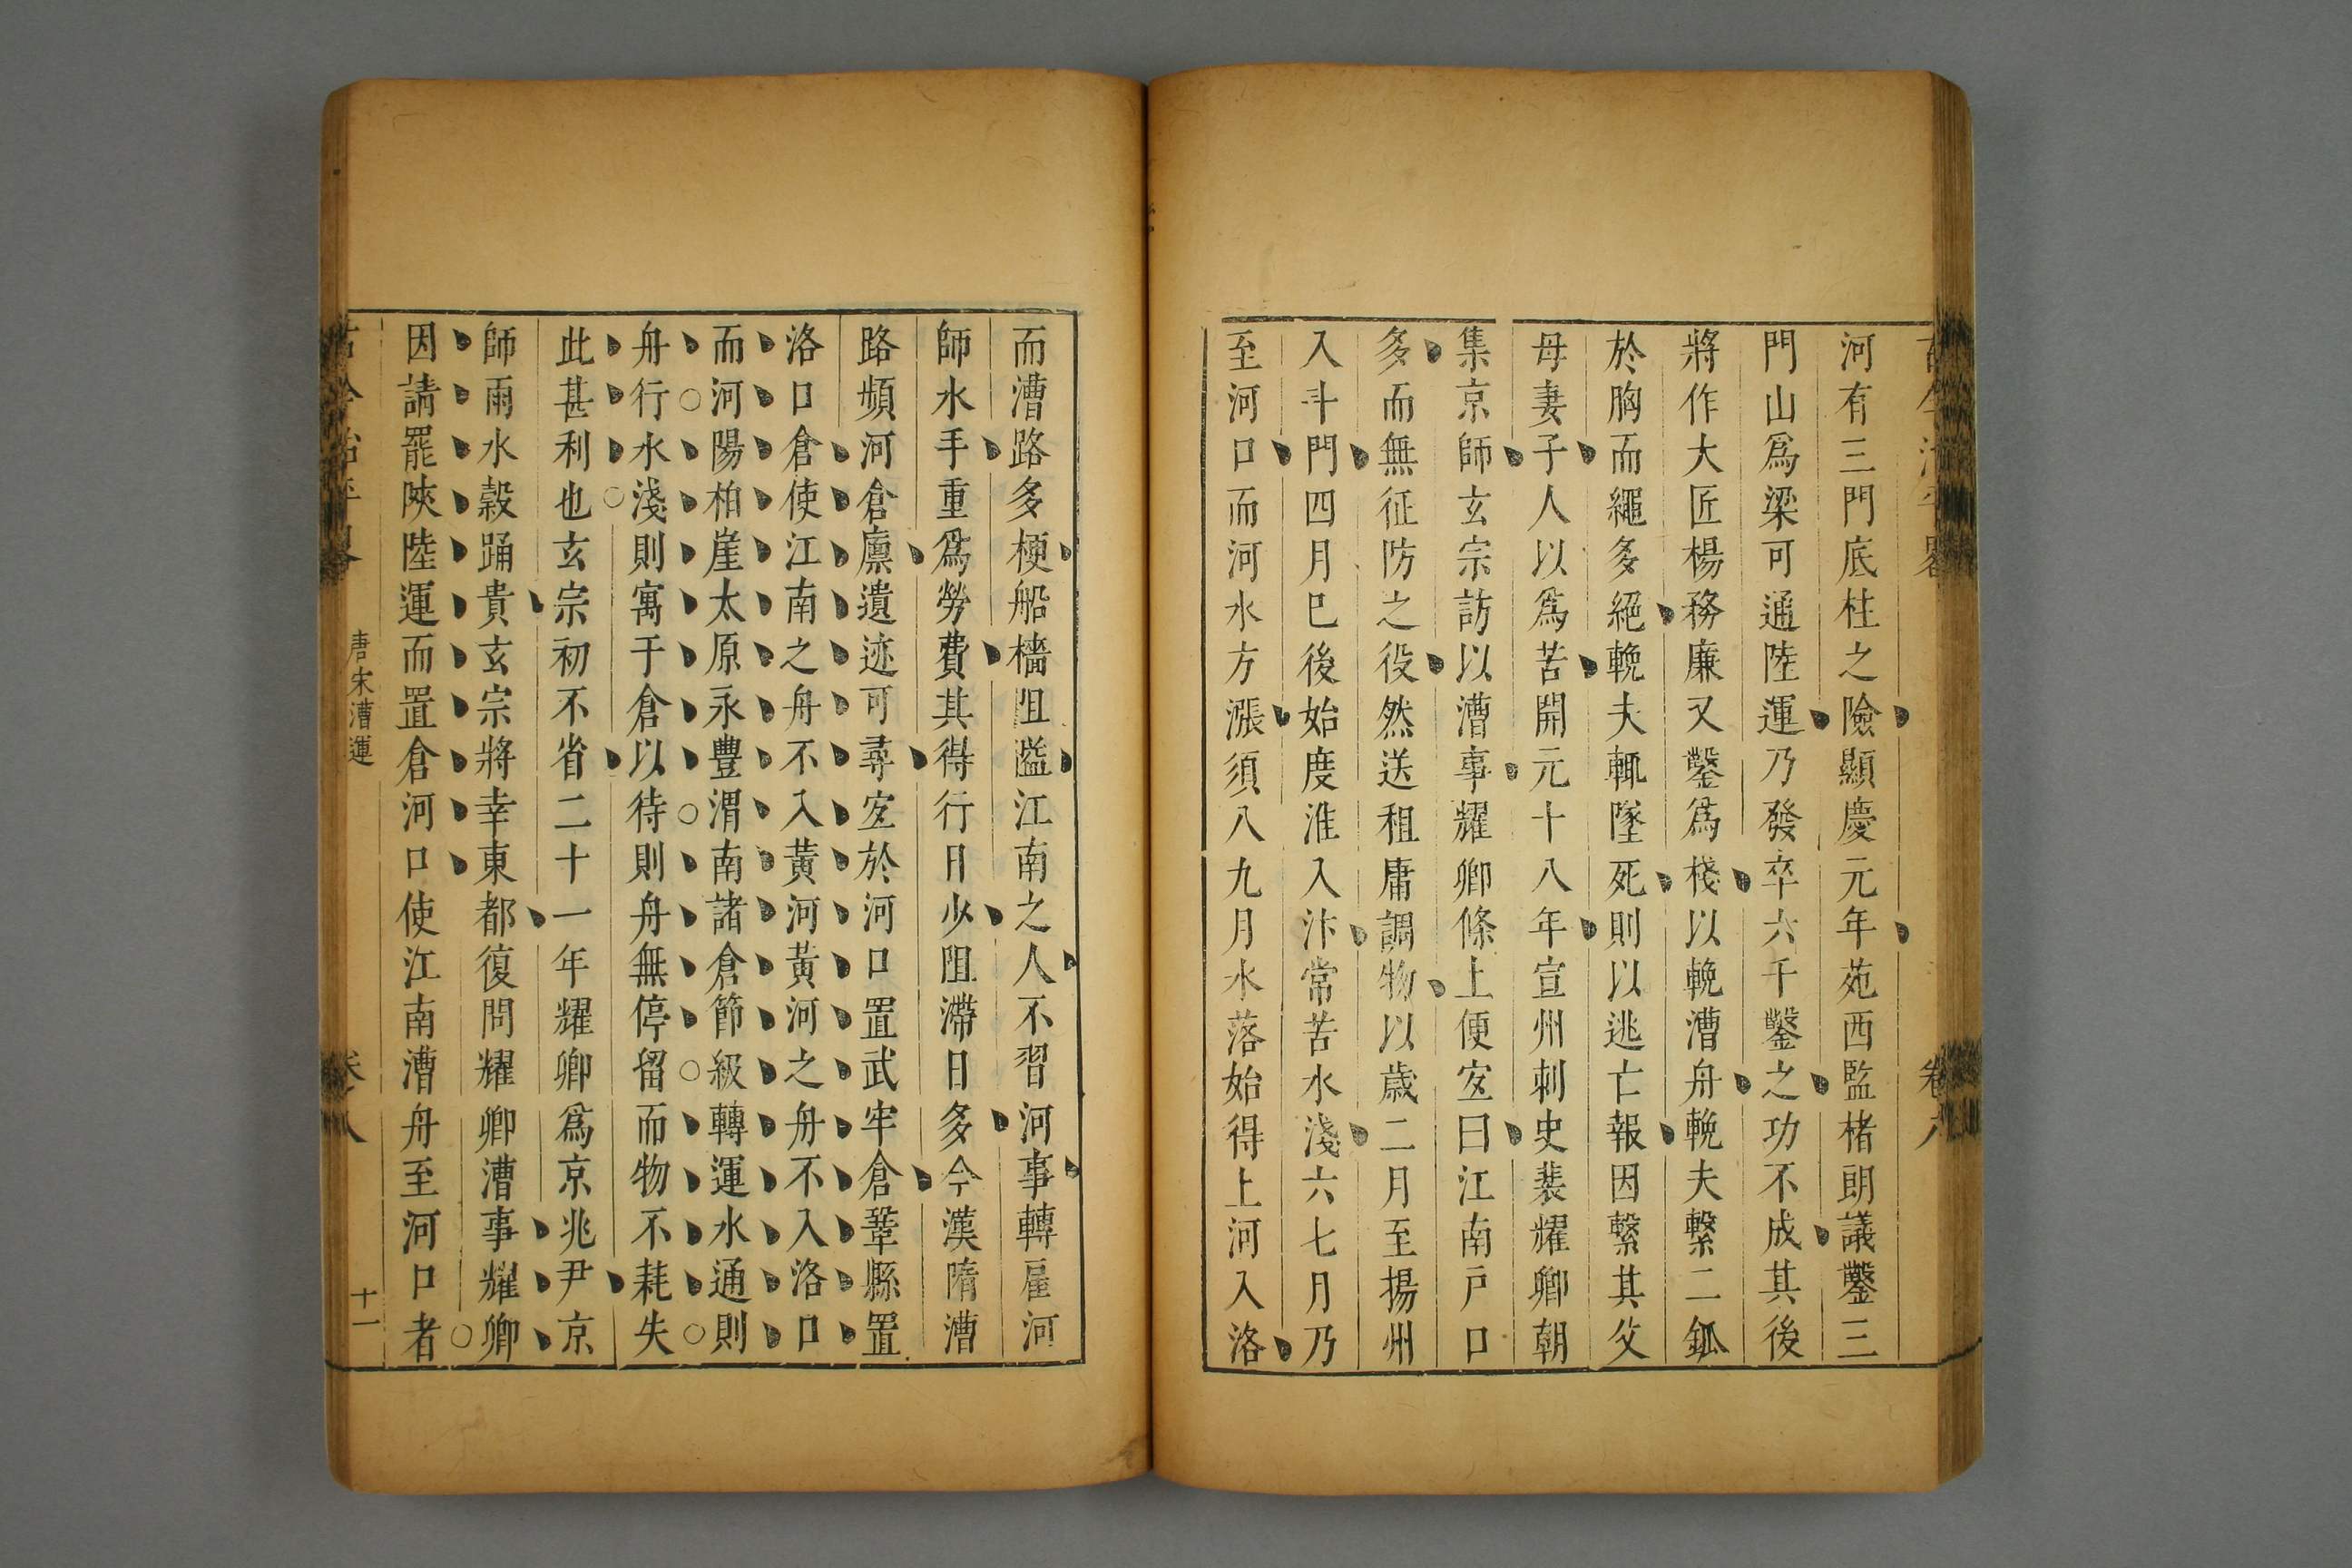 河有三門底柱之險顯慶元年苑西監楮朗議鑿三
門山爲梁可通陸運乃發卒六千鑿之功不成其後
將作大匠楊務廉又鑿爲棧以輓漕舟輓夫繫二鈲
於胸而繩多絕輓夫輒墜死則以逃亡報因繫其父
母妻子人以爲苦開元十八年宣州刺史裴耀卿朝
集京師玄宗訪以漕事耀卿條上便宐曰江南戸口
多而無征防之役然送租庸調物以歳二月至揚州
入斗門四月巳後始度淮入汴常苦水淺六七月乃
至河口而河水方漲須八九月水落始得上河入洛
而漕路多梗船檣阻隘江南之人不習河事轉雇河
師水手重爲勞費其得行日少阻滯日多今漢隋漕
路頻河倉廪遺迹可尋宐於河口置武牢倉鞏縣置
洛口倉使江南之舟不入黃河黃河之舟不入洛口
而河陽柏崖太原永豐渭南諸倉節級轉運水通則
舟行水淺則寓于倉以待則舟無停留而物不耗失
此甚利也玄宗初不省二十一年耀卿爲京兆尹京
師雨水穀踊貴玄宗將幸東都復問耀卿漕事耀卿
因請罷陝陸運而置倉河口使江南漕舟至河口者
唐宋漕運
卷八
十一